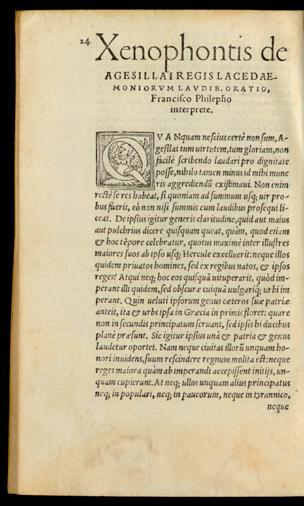 24
Xenophontis de
AGESILLAI REGIS LACEDAE-
MONIORVM LAVDIB. ORATIO,
Francisco Philepho
interprete.
QVANquam nescius certè non sum, A-
gesilai tum uirtutem, tum gloriam, non
facilè scribendo laudari pro dignitate
posse, nihilo tamen minus id mihi mune
ris aggrediendũ existimaui. Non enim
rectè se res habeat, si quoniam ad summum usq; uir pro
bus fuerit, eò non nisi summis eum laudibus prosequi li-
ceat. De ipsius igitur generis claritudine, quid aut maius
aut pulchrius dicere quisquam queat, quàm, quod etiam
& hoc tẽpore celebratur, quotus maximè inter illustres
maiores suos ab ipso usq; Hercule excelluerit: neque illos
quidem priuatos homines, sed ex regibus natos, & ipsos
reges? Atqui neq; hoc eos quisquã uituperarit, quòd im-
perant illi quidem, sed obscuræ cuiquã uulgariq; urbi im
perant. Quin ueluti ipsorum genus cæteros suæ patriæ
anteit, ita & urbs ipsa in Græcia in primis floret: quare
non in secundis principatum seruant, sed ipsi bi ducibus
planè præsunt. Sic igitur ipsius unà & patria & genus
laudetur oportet. Nam neque ciuitas illorũ unquam ho-
nori inuidens, suum rescindere regnum molita est: neque
reges maiora quàm ab imperandi accepissent initijs, un-
quam cupierunt. At neq; ullus unquam alius principatus
neq; in populari, neq; in paucorum, neque in tyrannico,
neque